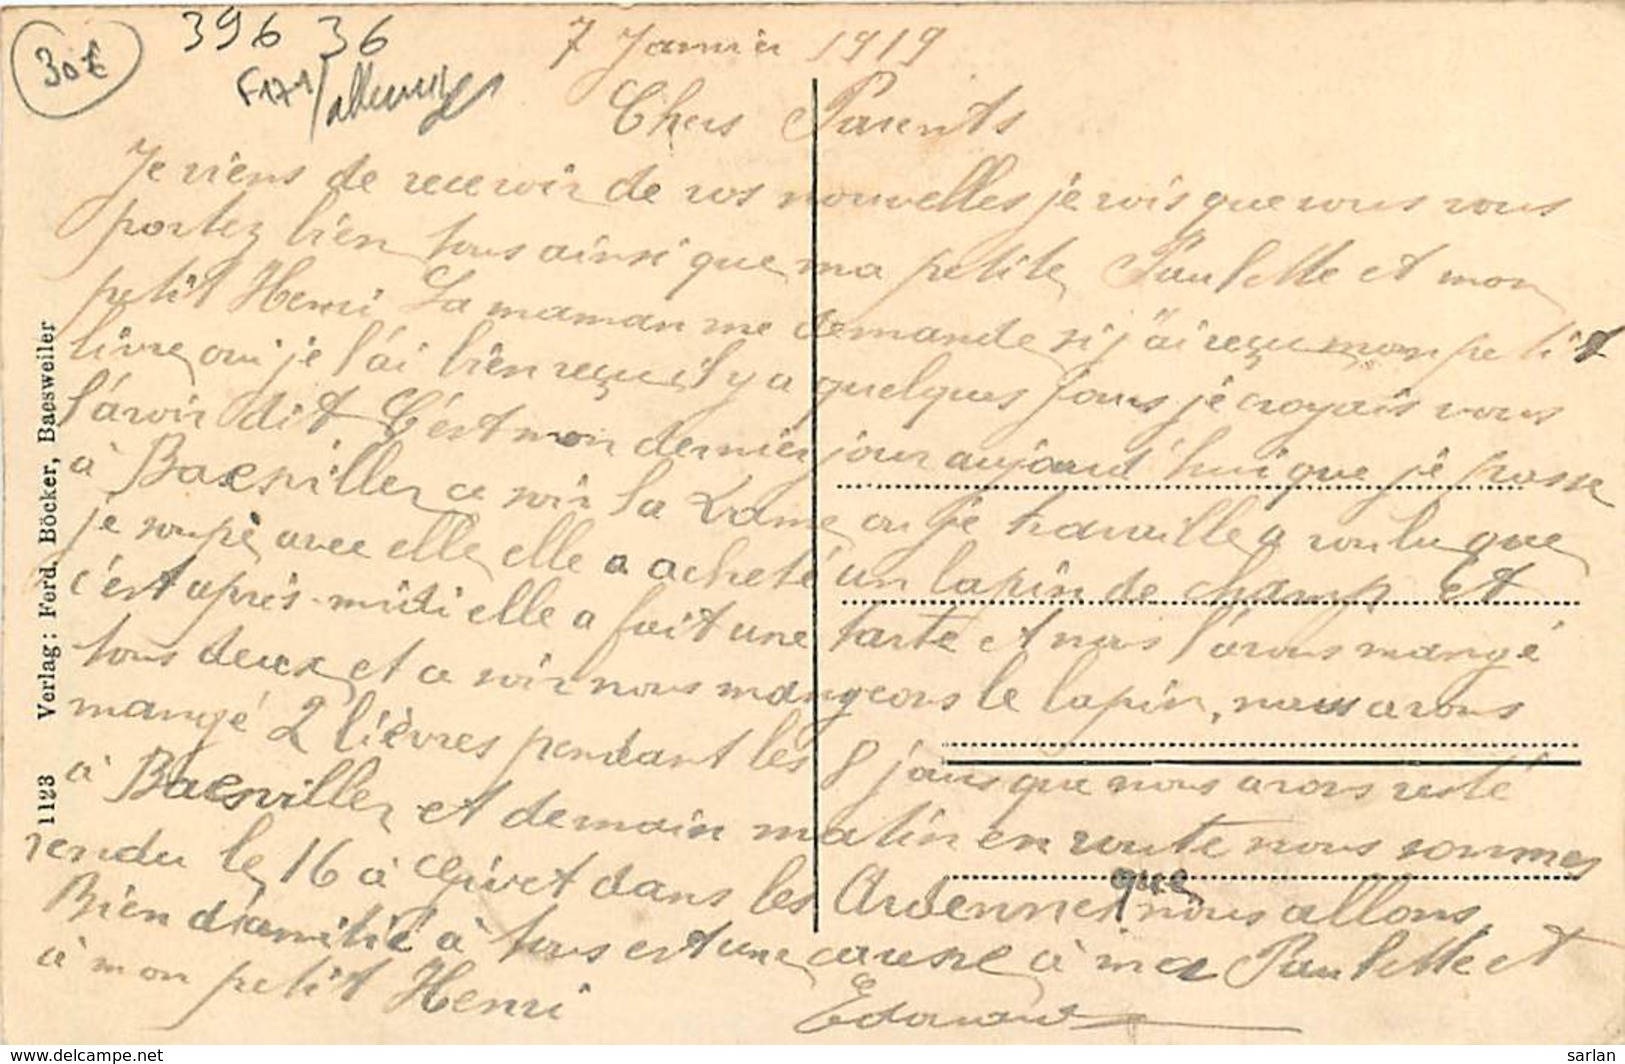 30€
396 36
F171/
7 Janvier 1919
Chers Parents
Je viens de recevoir de vos nouvelles je vois que vous vous
portez bien tous ainsi que ma petite Paulette et mon
petit Henri La maman me demande si j'ai reçu mon petit
livre oui je l'ai bien reçu il y a quelques jours je croyais vous
l'avoir dit C'est mon dernier jour aujourd'hui que je passe
à Baesviller ce soir la Dame ou je travaille a voulu que
je soupe avec elle elle a acheté un lapin de champ et
c'est après-midi elle a fait une tarte et nous l'avons mangé
tous deux et ce soir nous mangeons le lapin, nous avons
mangé 2 lièvres pendant les 8 jours que nous avons resté
à Baesviller et demain matin en route nous sommes
rendu le 16 à Givet dans les Ardennes que nous allons,
Bien d'amitié à tous est une caresse à ma Paulette et
à mon petit Henri
Edouard
1123 Verlag: Ferd. Böcker, Baesweiler
www.delcampe.net
sarlan